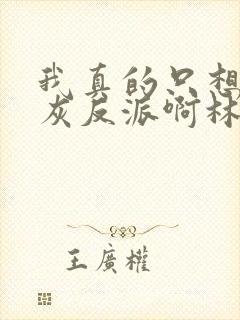 我真的只想
灰反派啊林
王廣權